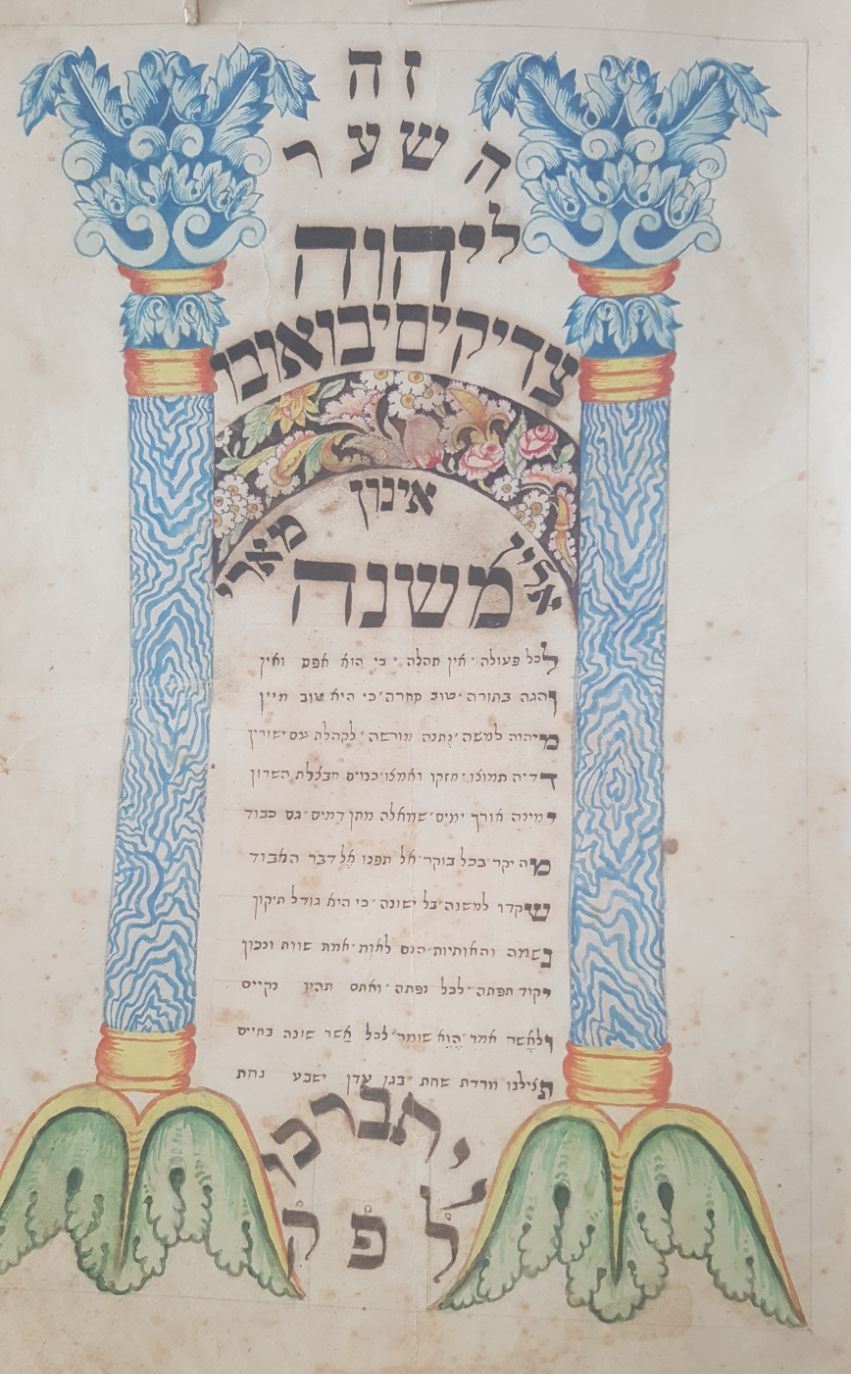 זה
השער
ליהוה
צדיקים יבואו בו
אילין אינון מארי
משנה
לכל פעולה אין תהלה כי הוא אפס ואין
והגה בתורה טוב סחרה כי היא טוב מיין
מיהוה למשה נתנה מורשה לקהלת עם ישורין
דדיה תמוצו חזקו ואמצו חבצלת השרון
ימינה אורך ימים שמאלה מתן דמים גם כבוד
מה יקר בכל בוקר אל תפנו אל דבר האבוד
שקדו למשנה בל ישונה כי היא גודל תיקון
בשמה והאותיות הנם לאות אמת שוות ונכון
יקוד תפתה לכל נפתה ואתם תהיו נקיים
ולאשר אמר הוא שומר לכל אשר שונה בחיים
תצילנו מרדת שחת בגן עדן ישבע נחת
יתברכו
לפק